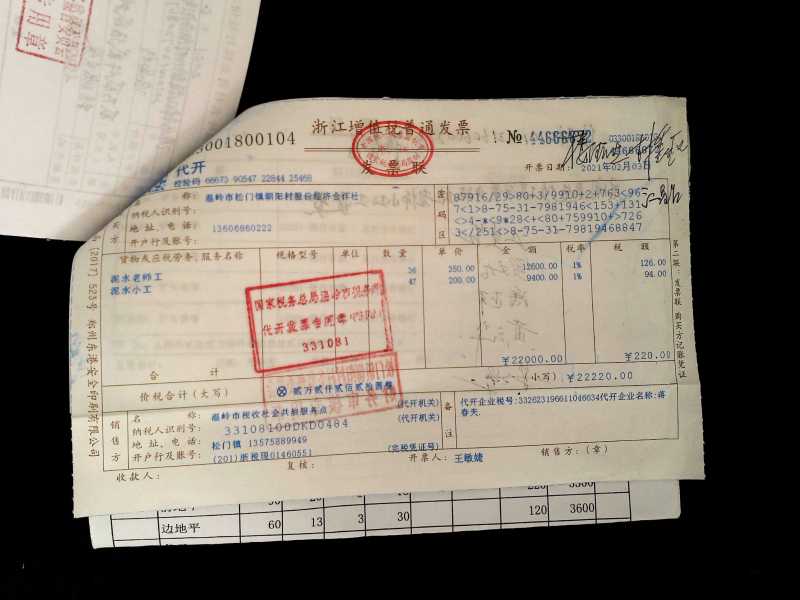 用章
3001800104
浙江增值税普通发票
发票联
№ 44666842
033001800104
代开
校验码 66673 90547 22844 25468
开票日期: 2021年02月03日
购买方
名　　称: 温岭市松门镇朝阳村股份经济合作社
纳税人识别号:
地址、电话: 13606860222
开户行及账号:
密码区
87916/29>80+3/9910+2+763<96
7<1>8-75-31-7981946<153+131
<>4-*<9*28<+<80+759910+>726
3</251<>8-75-31-79819468847
货物或应税劳务、服务名称 规格型号 单位 数量 单价 金额 税率 税额
泥水老师工 36 350.00 12600.00 1% 126.00
泥水小工 47 200.00 9400.00 1% 94.00
国家税务总局温岭市税务局
代开发票专用章
331081
合计 ￥22000.00 ￥220.00
价税合计(大写) ⊗贰万贰仟贰佰贰拾圆整 (小写) ￥22220.00
销售方
名　　称: 温岭市税收社会共治服务点 (代开机关)
纳税人识别号: 33108100DKD0484 (代开机关)
地址、电话: 松门镇 13575889949
开户行及账号: (201)浙税现0146051 (完税凭证号)
备注
代开企业税号:332623196611046634代开企业名称:蒋春天.
收款人:
复核:
开票人: 王敏婕
销售方:(章)
第二联:发票联 购买方记账凭证
(2017) 523号 郑州东港安全印刷有限公司
边地平 60 13 3 30 120 3600